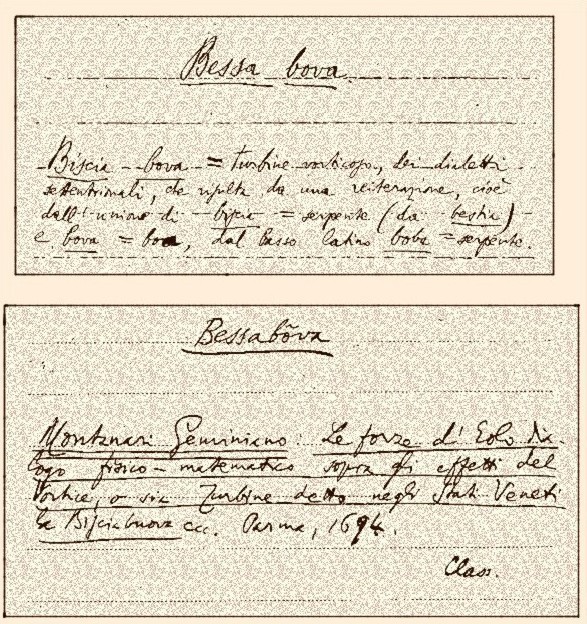 Bessa bova
Biscia - bova = turbine vorticoso, dei dialetti
settentrionali, che risulta da una reiterazione, cioè
dall'unione di biscia = serpente (da bestia)
e bova = boa, dal basso latino boba = serpente.
Bessabôva
Montanari Geminiano: Le forze d'Eolo dia-
logo fisico-matematico sopra gli effetti del
Vortice, o sia Turbine detto negli Stati Veneti
la Bisciabuova ecc. Parma, 1694.
Class.